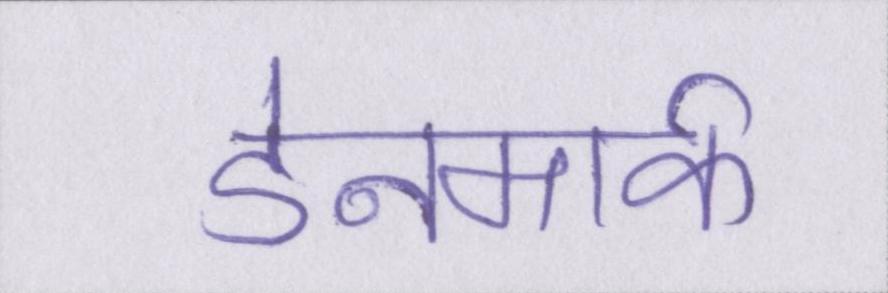 डेनमार्क